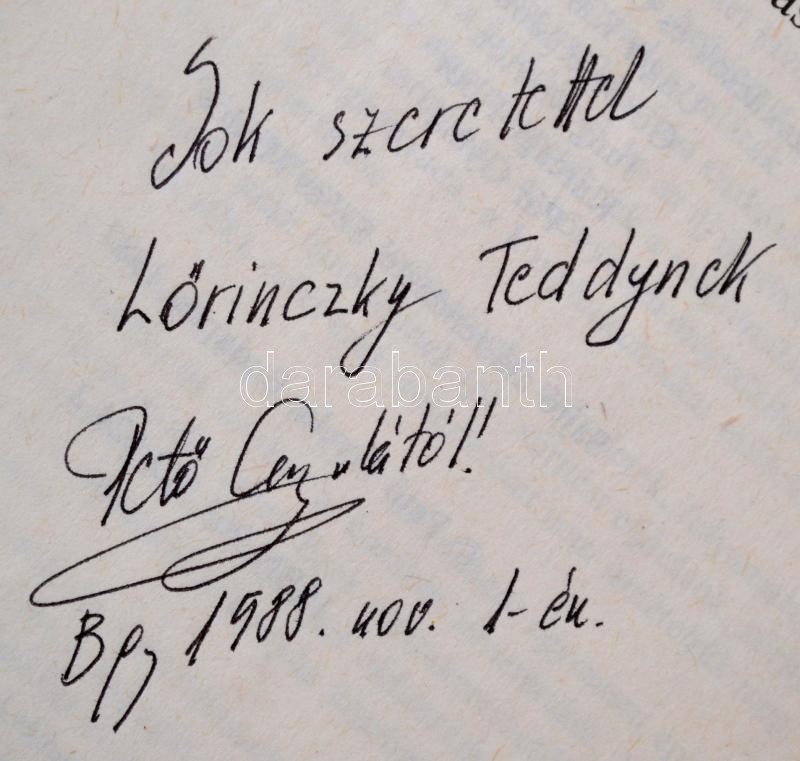 Sok szeretettel
Lőrinczky Teddynek
darabanth
Pető Gyulától!
Bp, 1988. nov. 1-én.